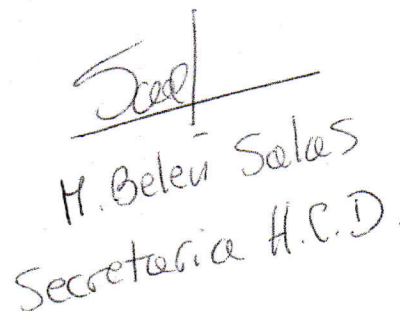 M. Belén Salas
Secretaria H.C.D.